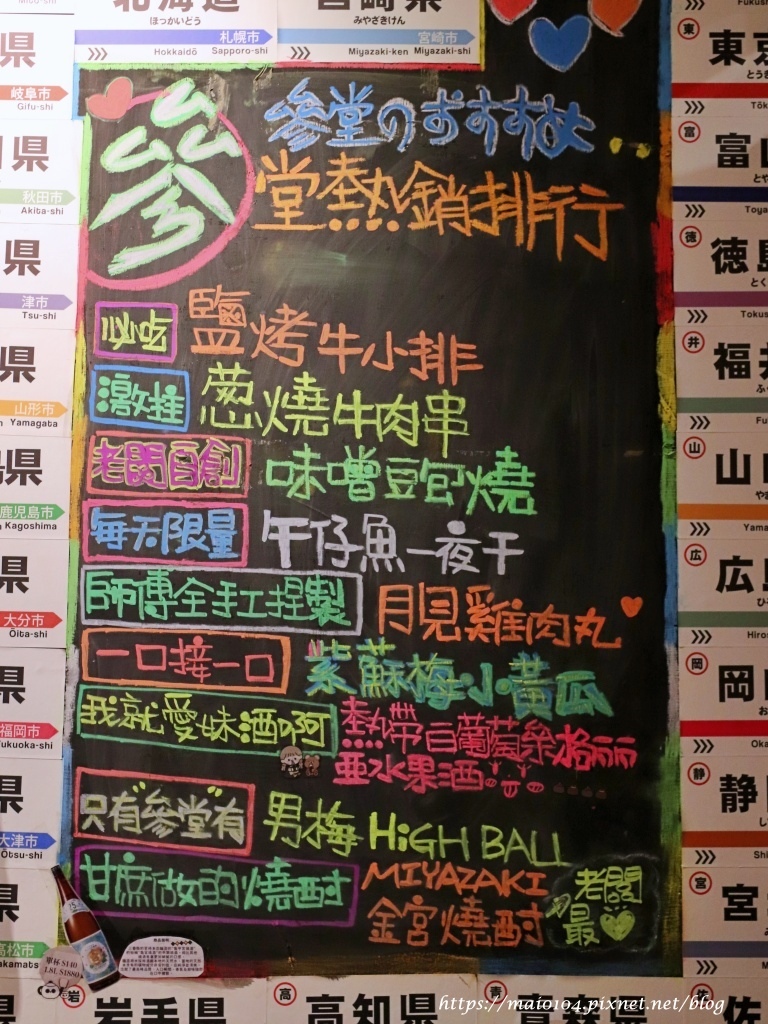 北海道
ほっかいどう
札幌市
Hokkaidō Sapporo-shi
宮崎県
みやざきけん
宮崎市
Miyazaki-ken Miyazaki-shi
參
參堂のおすすめ
堂熱銷排行
必吃 鹽烤牛小排
激推 葱燒牛肉串
老闆自創 味噌豆包燒
每天限量 午仔魚一夜干
師傅全手工捏製 月見雞肉丸
一口接一口 紫蘇梅小黃瓜
我就愛妹酒啊 熱帶白葡萄桑格麗
亜水果酒
只有"參堂"有 男梅 HiGH BALL
甘庶做的燒酎 MIYAZAKI
金宮燒酎
老闆
最
單杯 $140
1.8L $1880
県
岐阜市
Gifu-shi
県
秋田市
Akita-shi
県
津市
Tsu-shi
県
山形市
Yamagata
県
鹿児島市
Kagoshima
県
大分市
Ōita-shi
県
福岡市
Fukuoka-shi
県
大津市
Ōtsu-shi
高松市
東 東京
とうき
富 富山
Toya
徳 徳島
とくし
Tokus
井 福井
ふく
Fu
山 山
Yama
広 広島
ひろ
Hiros
岡 岡
お
Oka
静 静
し
Shi
宮 宮
み
岩 岩手県
高 高知県
青 青森県
佐 佐
https://maio104.pixnet.net/blog